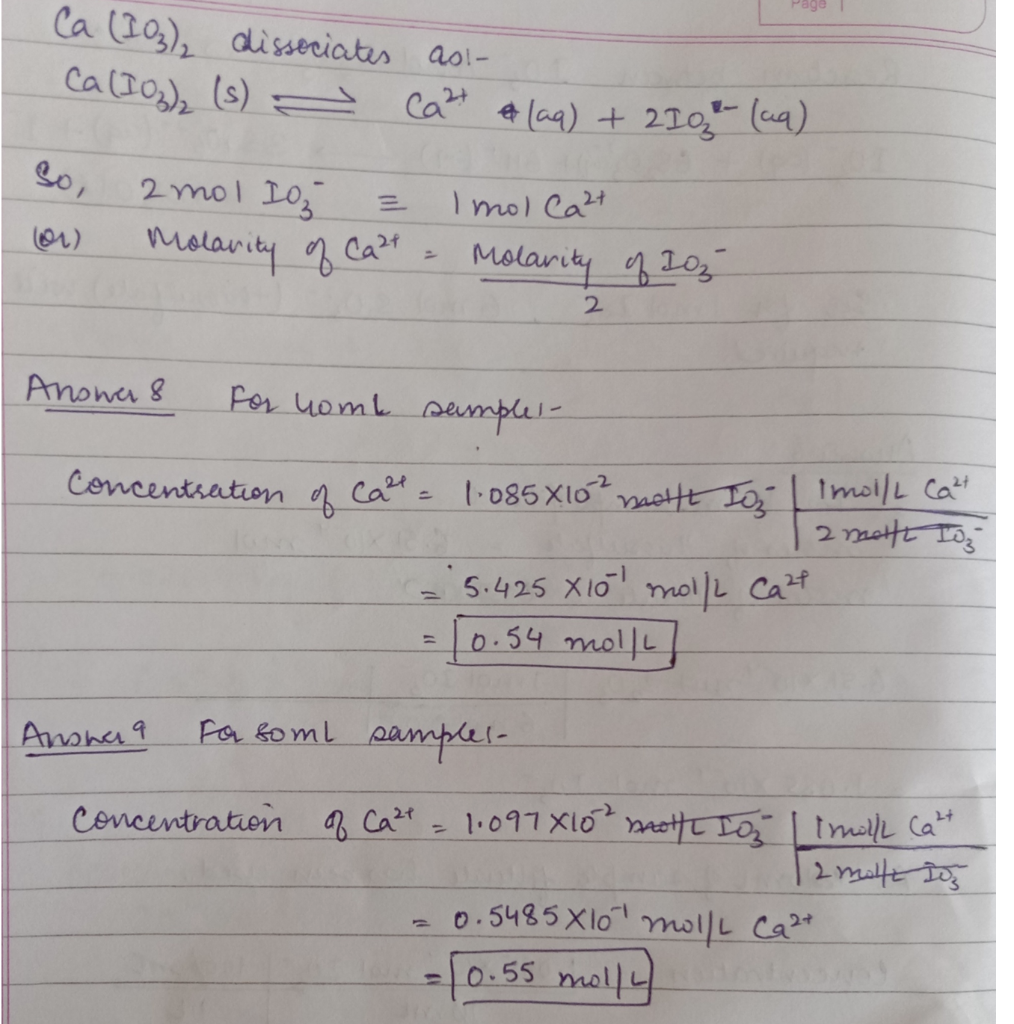 Page
Ca(IO₃)₂ dissociates as:-
Ca(IO₃)₂ (s) ⇌ Ca²⁺ (aq) + 2IO₃⁻ (aq)
So, 2 mol IO₃⁻ ≡ 1 mol Ca²⁺
(or) Molarity of Ca²⁺ = Molarity of IO₃⁻
2
Answer 8 For 40mL sample:-
Concentration of Ca²⁺ = 1.085 X10⁻² mol/L IO₃⁻ | 1mol/L Ca²⁺
2 mol/L IO₃⁻
= 5.425 X10⁻¹ mol/L Ca²⁺
= 0.54 mol/L
Answer 9 For 80mL sample:-
Concentration of Ca²⁺ = 1.097 X10⁻² mol/L IO₃⁻ | 1mol/L Ca²⁺
2 mol/L IO₃⁻
= 0.5485 X10⁻¹ mol/L Ca²⁺
= 0.55 mol/L